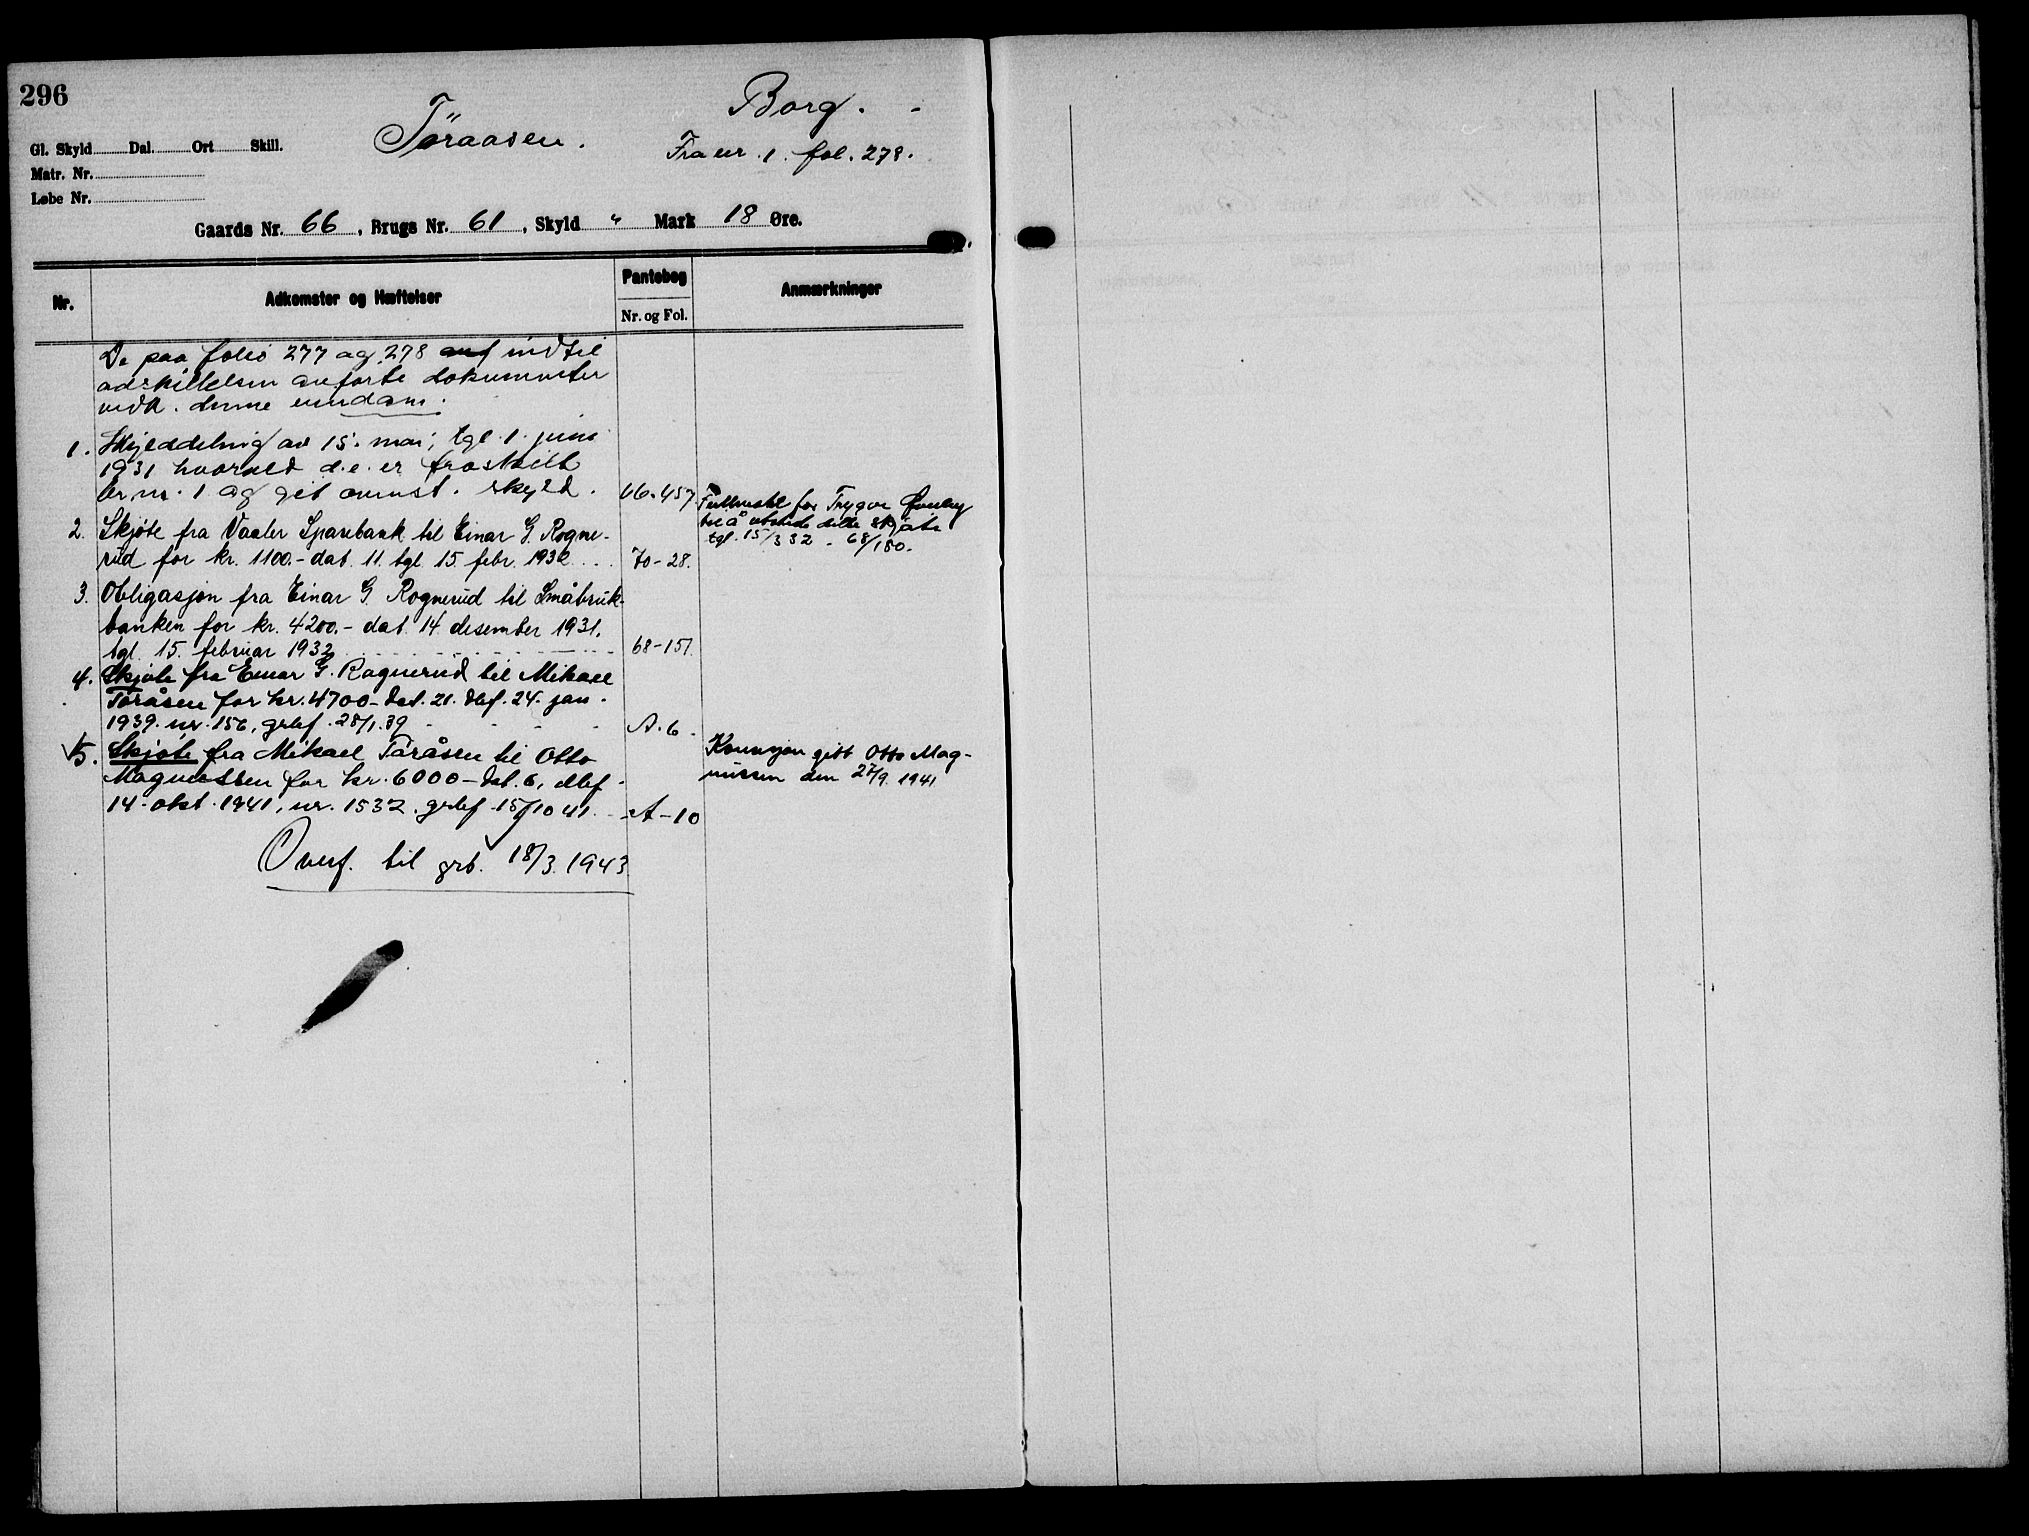 296
Tøraasen.
Borg. -
Fra nr. 1. fol. 278.
Gl. Skyld Dal Ort Skill.
Matr. Nr.
Løbe Nr.
Gaards Nr. 66, Brugs Nr. 61, Skyld " Mark 18 Øre.
Nr. Adkomster og Hæftelser Pantebog Nr. og Fol. Anmærkninger
De paa folio 277 og 278 indtil
adskillelsen anførte dokumenter
vedk. denne eiendom.
1. Skylddeling av 15. mai, tgl. 1. juni
1931 hvorved d.e. er fraskilt
br. nr. 1 og git ovennst. skyld. 66-457
2. Skjøte fra Vaaler Sparebank til Einar G. Rogne-
rud for kr. 1100.- dat. 11. tgl. 15. febr. 1932... 70-28.
Fullmakt for Trygve
til å utstede dette skjøte
tgl. 15/3 32 - 68/180.
3. Obligasjon fra Einar G. Rognerud til Småbruk-
banken for kr. 4200.- dat. 14. desember 1931.
tgl. 15. februar 1932 68-151.
4. Skjøte fra Einar G. Rognerud til Mikael
Tøråsen for kr. 4700- dat. 21. dbf. 24. jan.
1939. nr. 156, grbf. 28/1.39 A. 6.
5. Skjøte fra Mikael Tøråsen til Otto
Magnussen for kr. 6000- dat. 6, dbf.
14. okt. 1941, nr. 1532. grbf. 15/10 41. A-10
Konsesjon gitt Otto Mag-
nussen den 27/9. 1941
Overf. til grb. 18/3. 1943